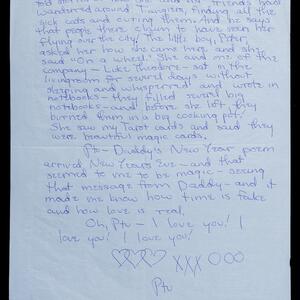 told stories she and her friends have
wandered around , finding all the
sick cats and curing them. And he says
that people there claim to have seen her
flying over the city. The little boy, Peter,
asked her how she came here and she
said "On a wheel." She and one of the
company - Luke Theodore - sat in the
livingroom for several days without
sleeping and whispered and wrote in
notebooks - they filled several big
notebooks - and before she left they
burned them in a big cooking pot.
She saw my Tarot cards and said they
were beautiful magic cards.
Ptv - Daddy's New Year poem
arrived New Years Eve - and that
seemed to me to be magic - seeing
that message from Daddy - and it
made me know how time is fake
and how love is real.
Oh, Ptv - I love you! I
love you! I love you!
XXX OOO
Ptv